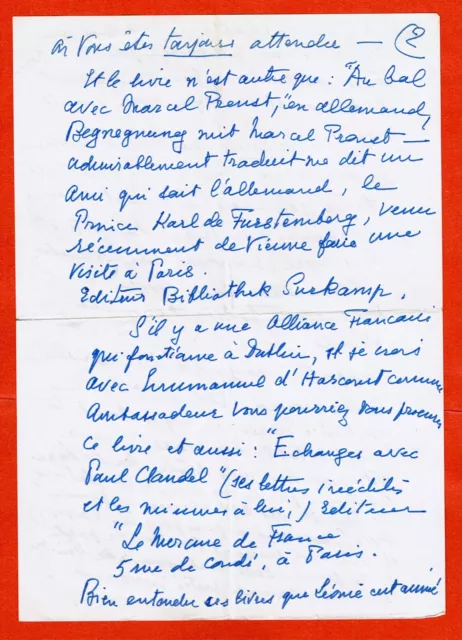 où vous êtes toujours attendue — (2
Et le livre n'est autre que : "Au bal
avec Marcel Proust," en allemand,
Begnegnung mit Marcel Proust —
admirablement traduit me dit un
ami qui sait l'allemand, le
Prince Karl de Furstemberg, venu
récemment de Vienne faire une
visite à Paris.
Editeur Bibliothek Surkamp.
S'il y a une Alliance Francaise
qui fonctionne à Dublin, et je crois
avec Emmanuel d'Harcourt comme
Ambassadeur vous pourriez vous procurer
ce livre et aussi : "Echanges avec
Paul Claudel" (ses lettres inédites
et les miennes à lui,) Editeur
"Le Mercure de France
5 rue de Condé, à Paris.
Bien entendu ces livres que Léonie eut aimé